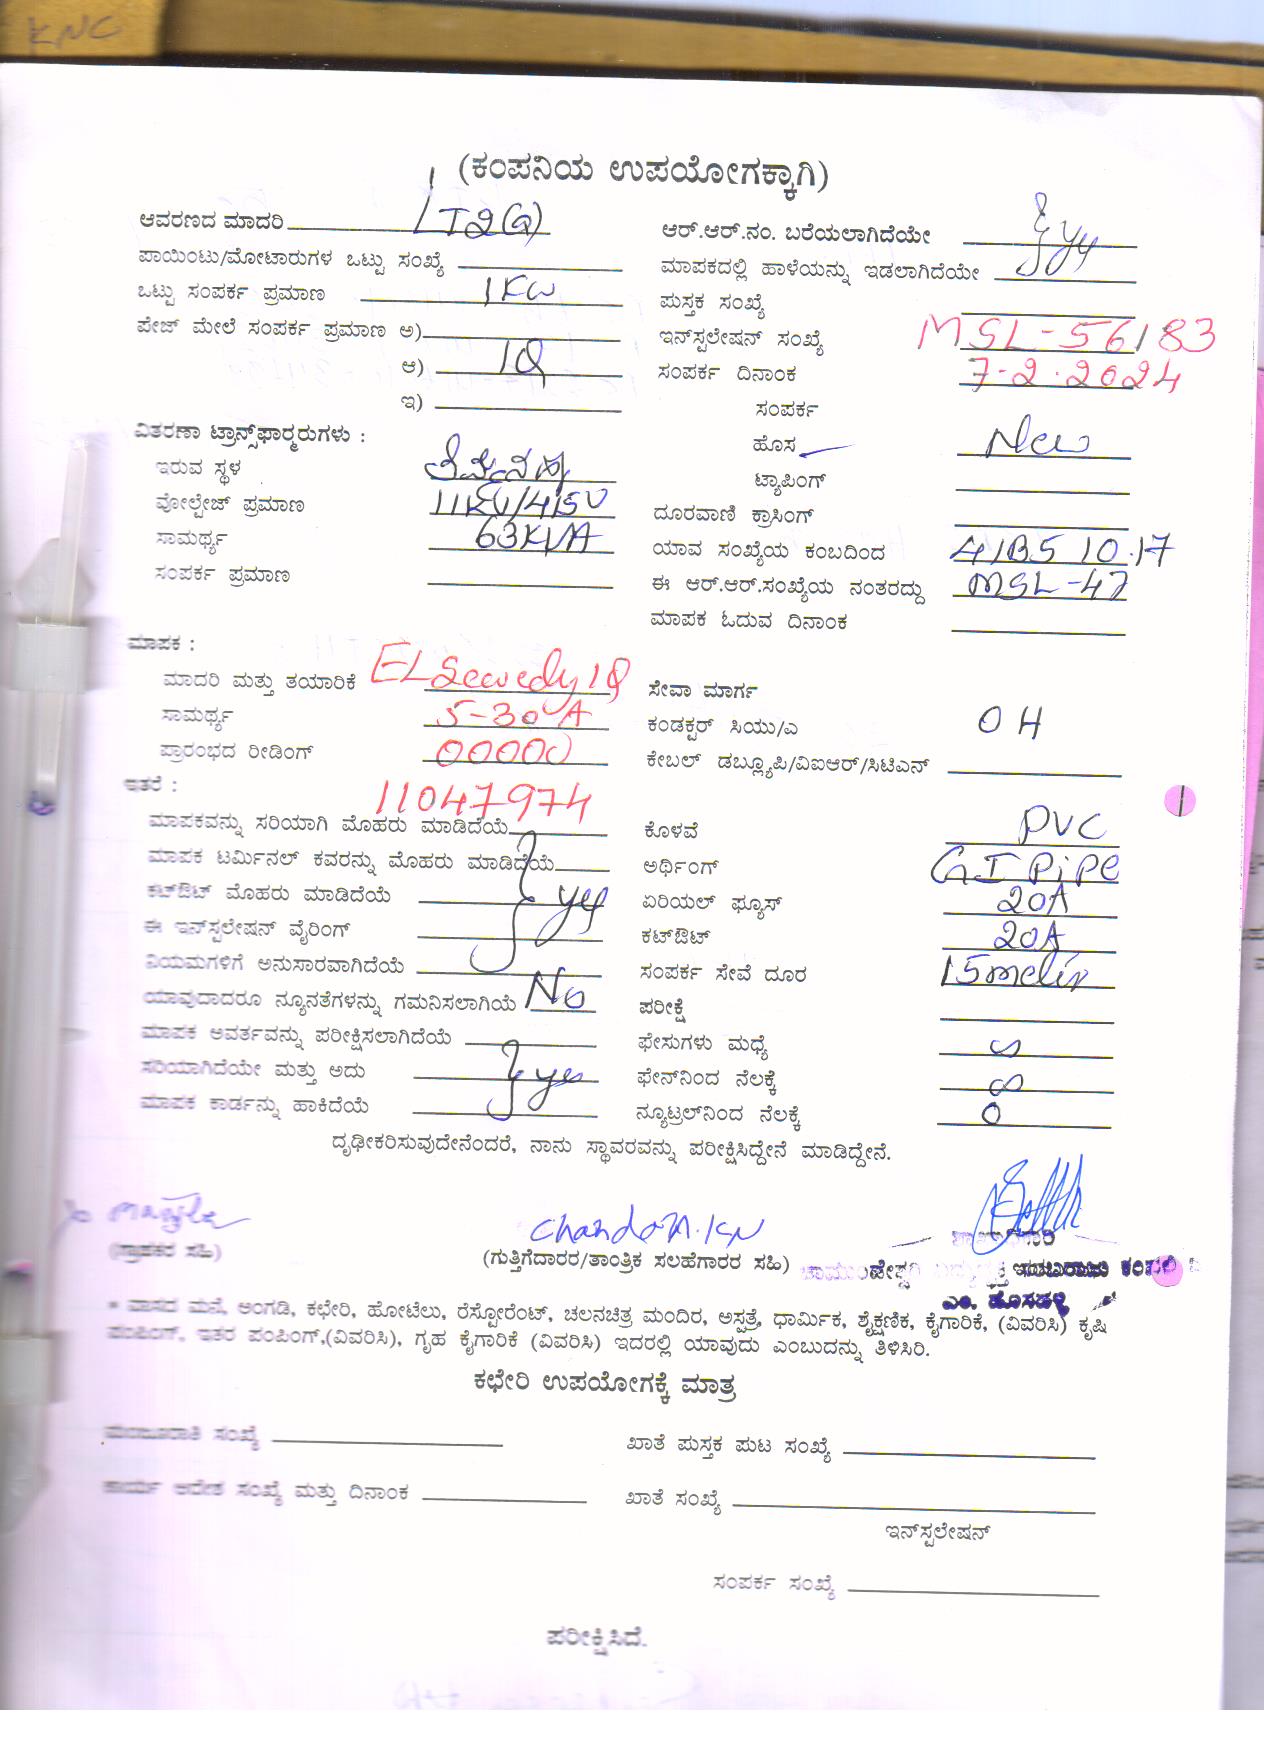 KNC
(ಕಂಪನಿಯ ಉಪಯೋಗಕ್ಕಾಗಿ)
ಆವರಣದ ಮಾದರಿ LT2(a)
ಪಾಯಿಂಟು/ಮೋಟಾರುಗಳ ಒಟ್ಟು ಸಂಖ್ಯೆ
ಒಟ್ಟು ಸಂಪರ್ಕ ಪ್ರಮಾಣ 1KW
ಪೇಜ್ ಮೇಲೆ ಸಂಪರ್ಕ ಪ್ರಮಾಣ ಅ)
ಆ) 1Φ
ಇ)
ವಿತರಣಾ ಟ್ರಾನ್ಸ್‌ಫಾರ್‍ಮರುಗಳು :
ಇರುವ ಸ್ಥಳ
ವೋಲ್ಟೇಜ್ ಪ್ರಮಾಣ 11KV/415V
ಸಾಮರ್ಥ್ಯ 63KVA
ಸಂಪರ್ಕ ಪ್ರಮಾಣ
ಆರ್.ಆರ್.ನಂ. ಬರೆಯಲಾಗಿದೆಯೇ
ಮಾಪಕದಲ್ಲಿ ಹಾಳೆಯನ್ನು ಇಡಲಾಗಿದೆಯೇ
ಪುಸ್ತಕ ಸಂಖ್ಯೆ
ಇನ್‌ಸ್ಟಲೇಷನ್ ಸಂಖ್ಯೆ MSL-56183
ಸಂಪರ್ಕ ದಿನಾಂಕ 7-2-2024
ಸಂಪರ್ಕ
ಹೊಸ New
ಟ್ಯಾಪಿಂಗ್
ದೂರವಾಣಿ ಕ್ರಾಸಿಂಗ್
ಯಾವ ಸಂಖ್ಯೆಯ ಕಂಬದಿಂದ
ಈ ಆರ್.ಆರ್.ಸಂಖ್ಯೆಯ ನಂತರದ್ದು MSL-47
ಮಾಪಕ ಓದುವ ದಿನಾಂಕ
ಮಾಪಕ :
ಮಾದರಿ ಮತ್ತು ತಯಾರಿಕೆ ELSewedy 1Φ
ಸಾಮರ್ಥ್ಯ 5-30 A
ಪ್ರಾರಂಭದ ರೀಡಿಂಗ್ 00000
ಇತರೆ :
11047974
ಮಾಪಕವನ್ನು ಸರಿಯಾಗಿ ಮೊಹರು ಮಾಡಿದೆಯೆ
ಮಾಪಕ ಟರ್ಮಿನಲ್ ಕವರನ್ನು ಮೊಹರು ಮಾಡಿದೆಯೆ
ಕಟ್‌ಔಟ್ ಮೊಹರು ಮಾಡಿದೆಯೆ
ಈ ಇನ್‌ಸ್ಟಲೇಷನ್ ವೈರಿಂಗ್
ನಿಯಮಗಳಿಗೆ ಅನುಸಾರವಾಗಿದೆಯೆ
ಯಾವುದಾದರೂ ನ್ಯೂನತೆಗಳನ್ನು ಗಮನಿಸಲಾಗಿಯೆ No
ಮಾಪಕ ಅವರ್ತವನ್ನು ಪರೀಕ್ಷಿಸಲಾಗಿದೆಯೆ
ಸರಿಯಾಗಿದೆಯೇ ಮತ್ತು ಅದು yes
ಮಾಪಕ ಕಾರ್ಡನ್ನು ಹಾಕಿದೆಯೆ
ಸೇವಾ ಮಾರ್ಗ
ಕಂಡಕ್ಟರ್ ಸಿಯು/ಎ OH
ಕೇಬಲ್ ಡಬ್ಲ್ಯೂಪಿ/ವಿಐಆರ್/ಸಿಟಿಎನ್
ಕೊಳವೆ PVC
ಅರ್ಥಿಂಗ್ GI Pipe
ಏರಿಯಲ್ ಫ್ಯೂಸ್ 20A
ಕಟ್‌ಔಟ್ 20A
ಸಂಪರ್ಕ ಸೇವೆ ದೂರ
ಪರೀಕ್ಷೆ
ಫೇಸುಗಳು ಮಧ್ಯೆ ∞
ಫೇಸ್‌ನಿಂದ ನೆಲಕ್ಕೆ ∞
ನ್ಯೂಟ್ರಲ್‌ನಿಂದ ನೆಲಕ್ಕೆ 0
ದೃಢೀಕರಿಸುವುದೇನೆಂದರೆ, ನಾನು ಸ್ಥಾವರವನ್ನು ಪರೀಕ್ಷಿಸಿದ್ದೇನೆ ಮಾಡಿದ್ದೇನೆ.
(ಗ್ರಾಹಕರ ಸಹಿ)
(ಗುತ್ತಿಗೆದಾರರ/ತಾಂತ್ರಿಕ ಸಲಹೆಗಾರರ ಸಹಿ)
ಎಂ. ಹೊಸಹಳ್ಳಿ
* ವಾಸದ ಮನೆ, ಅಂಗಡಿ, ಕಛೇರಿ, ಹೋಟೆಲು, ರೆಸ್ಟೋರೆಂಟ್, ಚಲನಚಿತ್ರ ಮಂದಿರ, ಅಸ್ಪತ್ರೆ, ಧಾರ್ಮಿಕ, ಶೈಕ್ಷಣಿಕ, ಕೈಗಾರಿಕೆ, (ವಿವರಿಸಿ) ಕೃಷಿ
ಪಂಪಿಂಗ್, ಇತರ ಪಂಪಿಂಗ್,(ವಿವರಿಸಿ), ಗೃಹ ಕೈಗಾರಿಕೆ (ವಿವರಿಸಿ) ಇದರಲ್ಲಿ ಯಾವುದು ಎಂಬುದನ್ನು ತಿಳಿಸಿರಿ.
ಕಛೇರಿ ಉಪಯೋಗಕ್ಕೆ ಮಾತ್ರ
ಮಂಜೂರಾತಿ ಸಂಖ್ಯೆ
ಖಾತೆ ಪುಸ್ತಕ ಪುಟ ಸಂಖ್ಯೆ
ಕಾರ್ಯ ಆದೇಶ ಸಂಖ್ಯೆ ಮತ್ತು ದಿನಾಂಕ
ಖಾತೆ ಸಂಖ್ಯೆ
ಇನ್‌ಸ್ಟಲೇಷನ್
ಸಂಪರ್ಕ ಸಂಖ್ಯೆ
ಪರೀಕ್ಷಿಸಿದೆ.